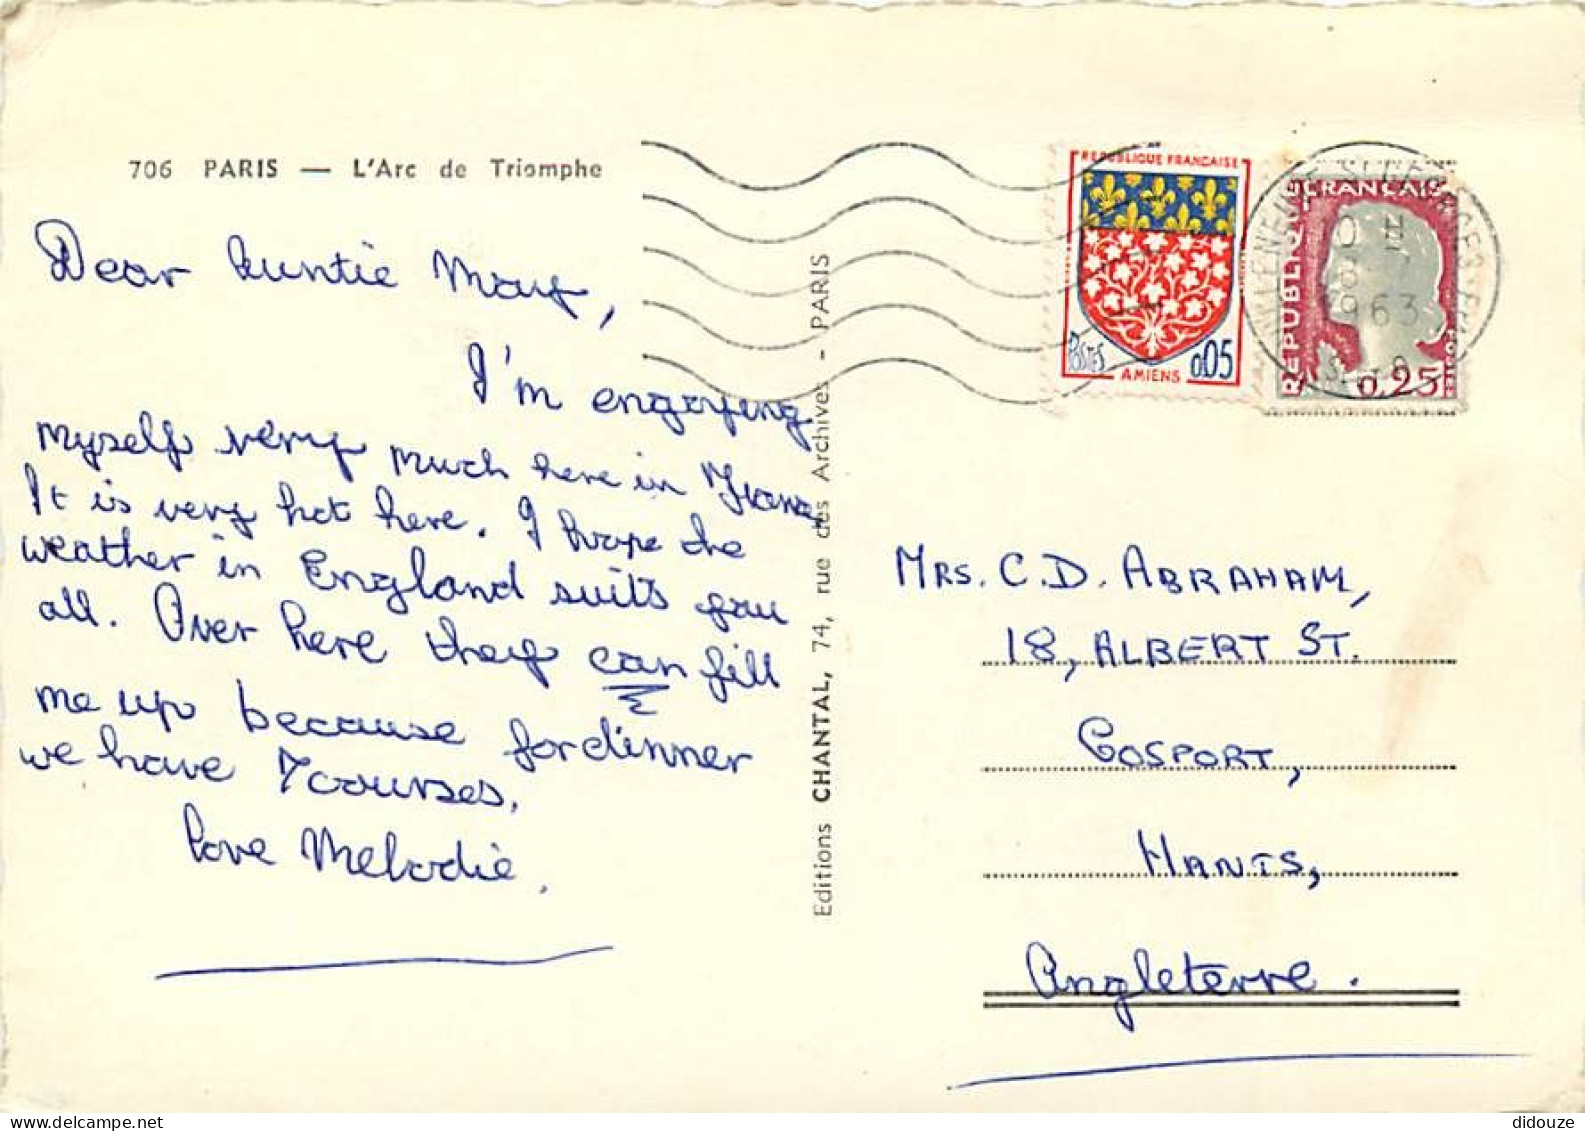 706 PARIS — L'Arc de Triomphe
Dear Auntie May,
I'm enjoying
myself very much here in France
It is very hot here. I hope the
weather in England suits you
all. Over here they can fill
me up because for dinner
we have 7 courses.
Love Melodie.
Editions CHANTAL, 74, rue des Archives - PARIS
REPUBLIQUE FRANÇAISE
POSTES
0,05
AMIENS
REPUBLIQUE
FRANÇAISE
0,25
VILLENEUVE ST GEORGES
10 H
1963
MRS. C. D. ABRAHAM,
18, ALBERT ST.
GOSPORT,
HANTS,
Angleterre.
didouze